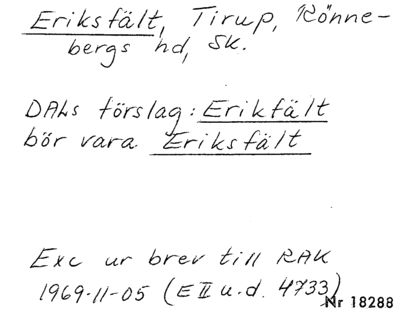 Eriksfält, Tirup, Rönne-
bergs hd, Sk.
DALs förslag: Erikfält
bör vara Eriksfält
Exc ur brev till RAK
1969-11-05 (E II u.d. 4733)
Nr 18288